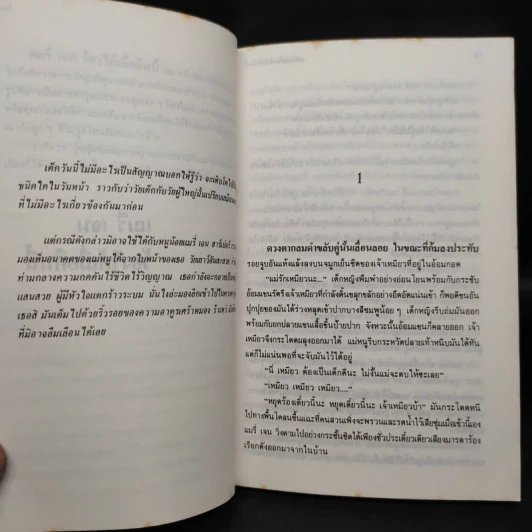 เด็กวันนี้ไม่มีอะไรเป็นสัญญาณบอกให้รู้ว่า จะเติบโตไปเป็น
ชนิดใดในวันหน้า ราวกับว่าวัยเด็กกับวัยผู้ใหญ่นั้นเปรียบเสมือน
ที่ไม่มีอะไรเกี่ยวข้องกันมาก่อน
แต่กรณีดังกล่าวมิอาจใช้ได้กับหนูน้อยแมรี่ เจน
มองเห็นอนาคตของแม่หนูได้จากใบหน้าของเธอ
ท่ามกลางความตายคืนไร้ชีวิตไร้วิญญาณ เธอกำลังจะกลายเป็น
แสนสวย ผู้มีหัวใจแตกร้าวระบม
เธอสิ มันเต็มไปด้วยริ้วรอยของความอาดูรเศร้าหมอง
ที่มิอาจลืมเลือนได้เลย
1
ดวงตากลมดำขลับคู่นั้นเลื่อนลอย ในขณะที่ก้มลงประทับ
รอยจูบอันแห้งแล้งลงบนจมูกเย็นชืดของเจ้าเหมียวที่อยู่ในอ้อมกอด
"แม่รักเหมียวนะ..." เด็กหญิงพึมพำอย่างอ่อนโยนพร้อมกับกระชับ
อ้อมแขนรัดรึงเจ้าเหมียวที่กำลังดิ้นขลุกขลักอย่างอึดอัดแน่นเข้า ก็พอดีขนอัน
ปุกปุยของมันได้ร่วงหลุดเข้าปากบางสีชมพูน้อย ๆ เด็กหญิงรีบถ่มมันออก
พร้อมกับยกปลายแขนเสื้อขึ้นป้ายปาก จังหวะนั้นอ้อมแขนก็คลายออก เจ้า
เหมียวจึงกระโดดผลุงออกมาได้ แม่หนูรีบกระหวัดปลายเท้าหนีบมันได้ทัน
แต่ก็ไม่แน่นพอที่จะจับมันไว้ได้อยู่
"นี่ เหมียว ต้องเป็นเด็กดีนะ ไม่งั้นแม่จะตบให้ซะเลย"
"เหมียว เหมียว เหมียว...."
"หยุดร้องเดี๋ยวนี้นะ หยุดเดี๋ยวนี้นะ เจ้าเหมียวบ้า" มันกระโดดหนี
ไปทางพื้นโคลนชื้นแฉะที่คนสวนเพิ่งจะพรวนและรดน้ำไว้เสียชุ่มเมื่อเช้านี้เอง
แมรี่ เจน วิ่งตามไปอย่างกระชั้นชิดได้เพียงชั่วประเดี๋ยวเดียวเสียงมารดาร้อง
เรียกดังออกมาจากในบ้าน